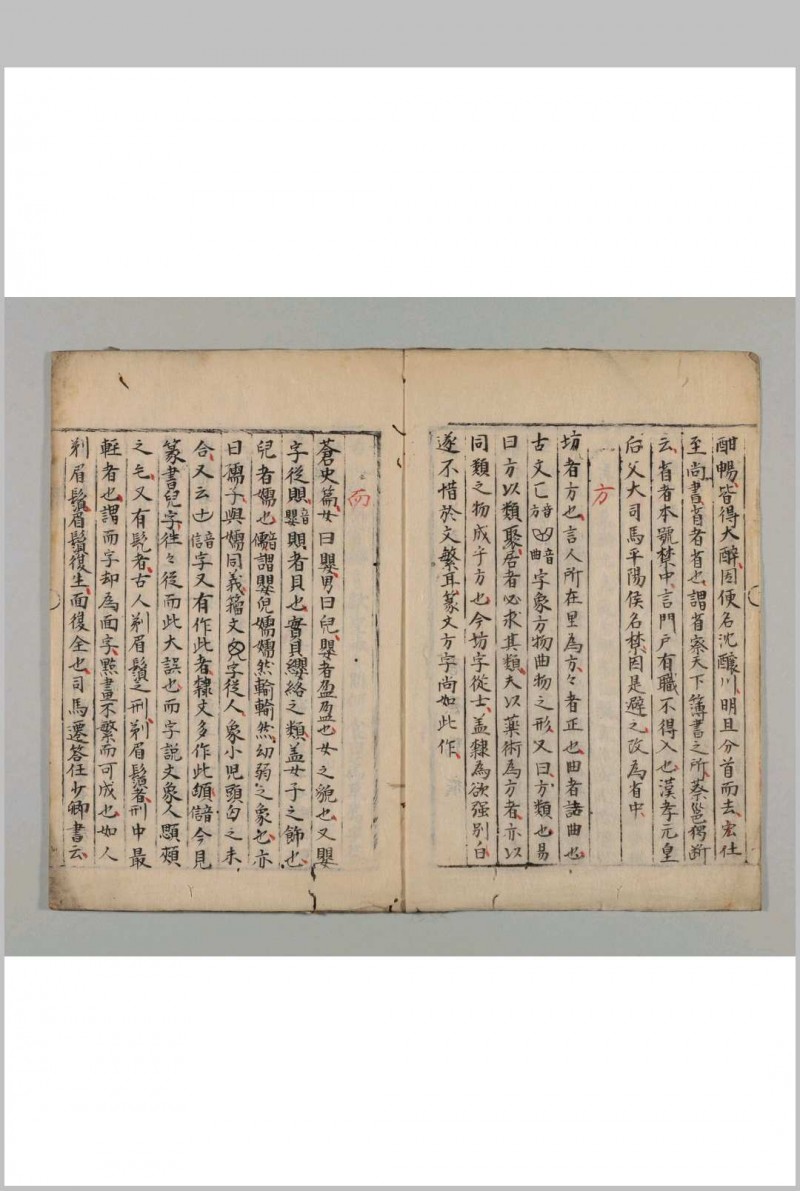 酣暢皆得大醉因便名沈釀川明旦分首而去宏仕
至尚書省者省也謂省察天下簿書之所蔡邕獨斷
云省者本號禁中言門戶有職不得入也漢孝元皇
后父大司馬平陽侯名禁因是避之改為省中
方
坊者方也言人所在里為方々者正也曲者諸曲也
古文匚音方𠚖音曲字象方物曲物之形又曰方類也易
曰方以類聚居者必求其類夫以藥術為方者亦以
同類之物成乎方也今坊字從士盖隸為欲强別白
遂不惜於文繁耳篆文方字尚如此作
而
蒼史篇女曰嬰男曰兒嬰者盈盈也女之貌也又嬰
字從賏音嬰賏者貝也寶貝纓絡之類盖女子之飾也
兒者嬬也音儒謂嬰兒嬬嬬然輸輸然幼弱之象也亦
曰孺子與嬬同義籀文兒字從人象小児頭囟之未
合又云音信字又有作此者隸文多作此音信今見
篆書兒字徃々從而此大誤也而字說文象人頤頰
之毛又有髡者古人剃眉鬚之刑剃眉鬚者刑中最
輕者也謂而字却為面字點畫不繁而可成也如人
剃眉鬚眉鬚復生面復全也司馬遷答任少卿書云